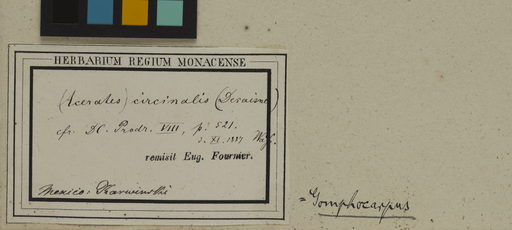 HERBARIUM REGIUM MONACENSE
(Acerates) circinalis (Decaisne)
cfr. DC. Prodr. VIII, p. 521.
d. XI. 1887
remisit Eug. Fournier.
Mexico: Karwinski
= Gomphocarpus